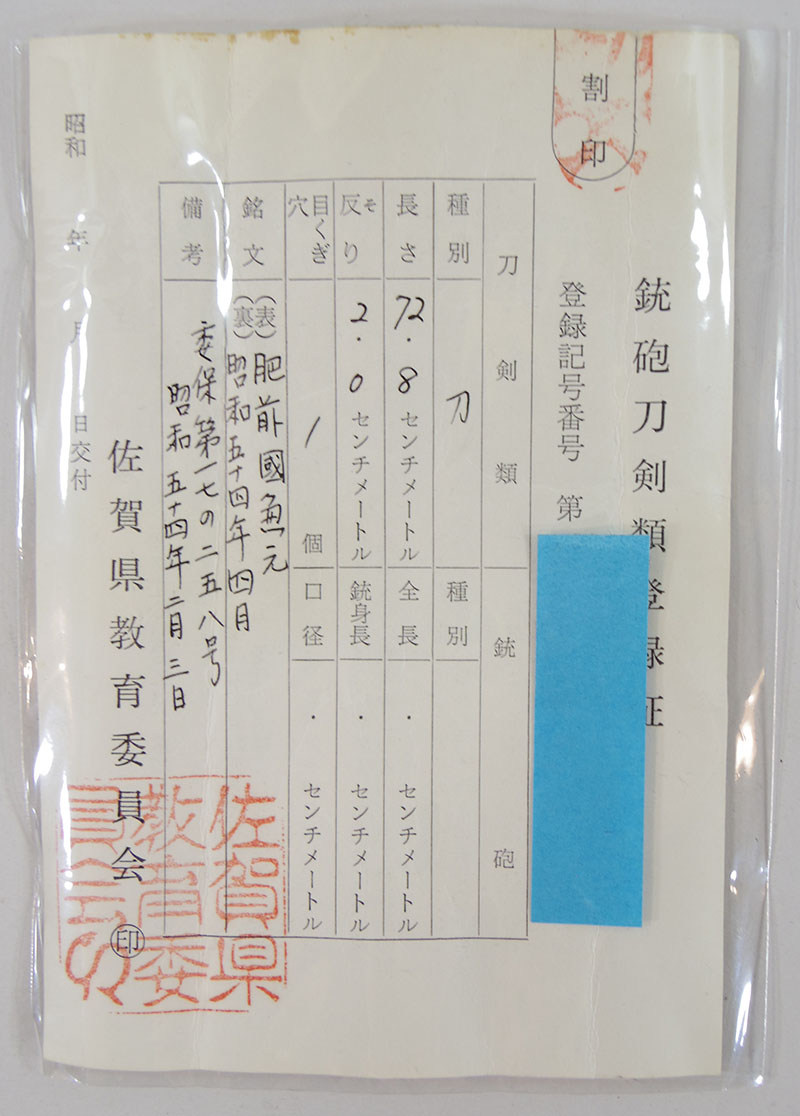 割印
銃砲刀剣類登録証
登録記号番号 第
刀剣類
種別 刀
長さ 72.8 センチメートル
反り そ 2.0 センチメートル
目くぎ穴 1 個
銘文 (表) 肥前國
(裏) 昭和五十四年四月
備考 委保第一七の二五八号
昭和五十四年二月三日
銃砲
種別
全長 . センチメートル
銃身長 . センチメートル
口径 . センチメートル
昭和 年 月 日交付
佐賀県教育委員会 印
佐賀県教育委員会